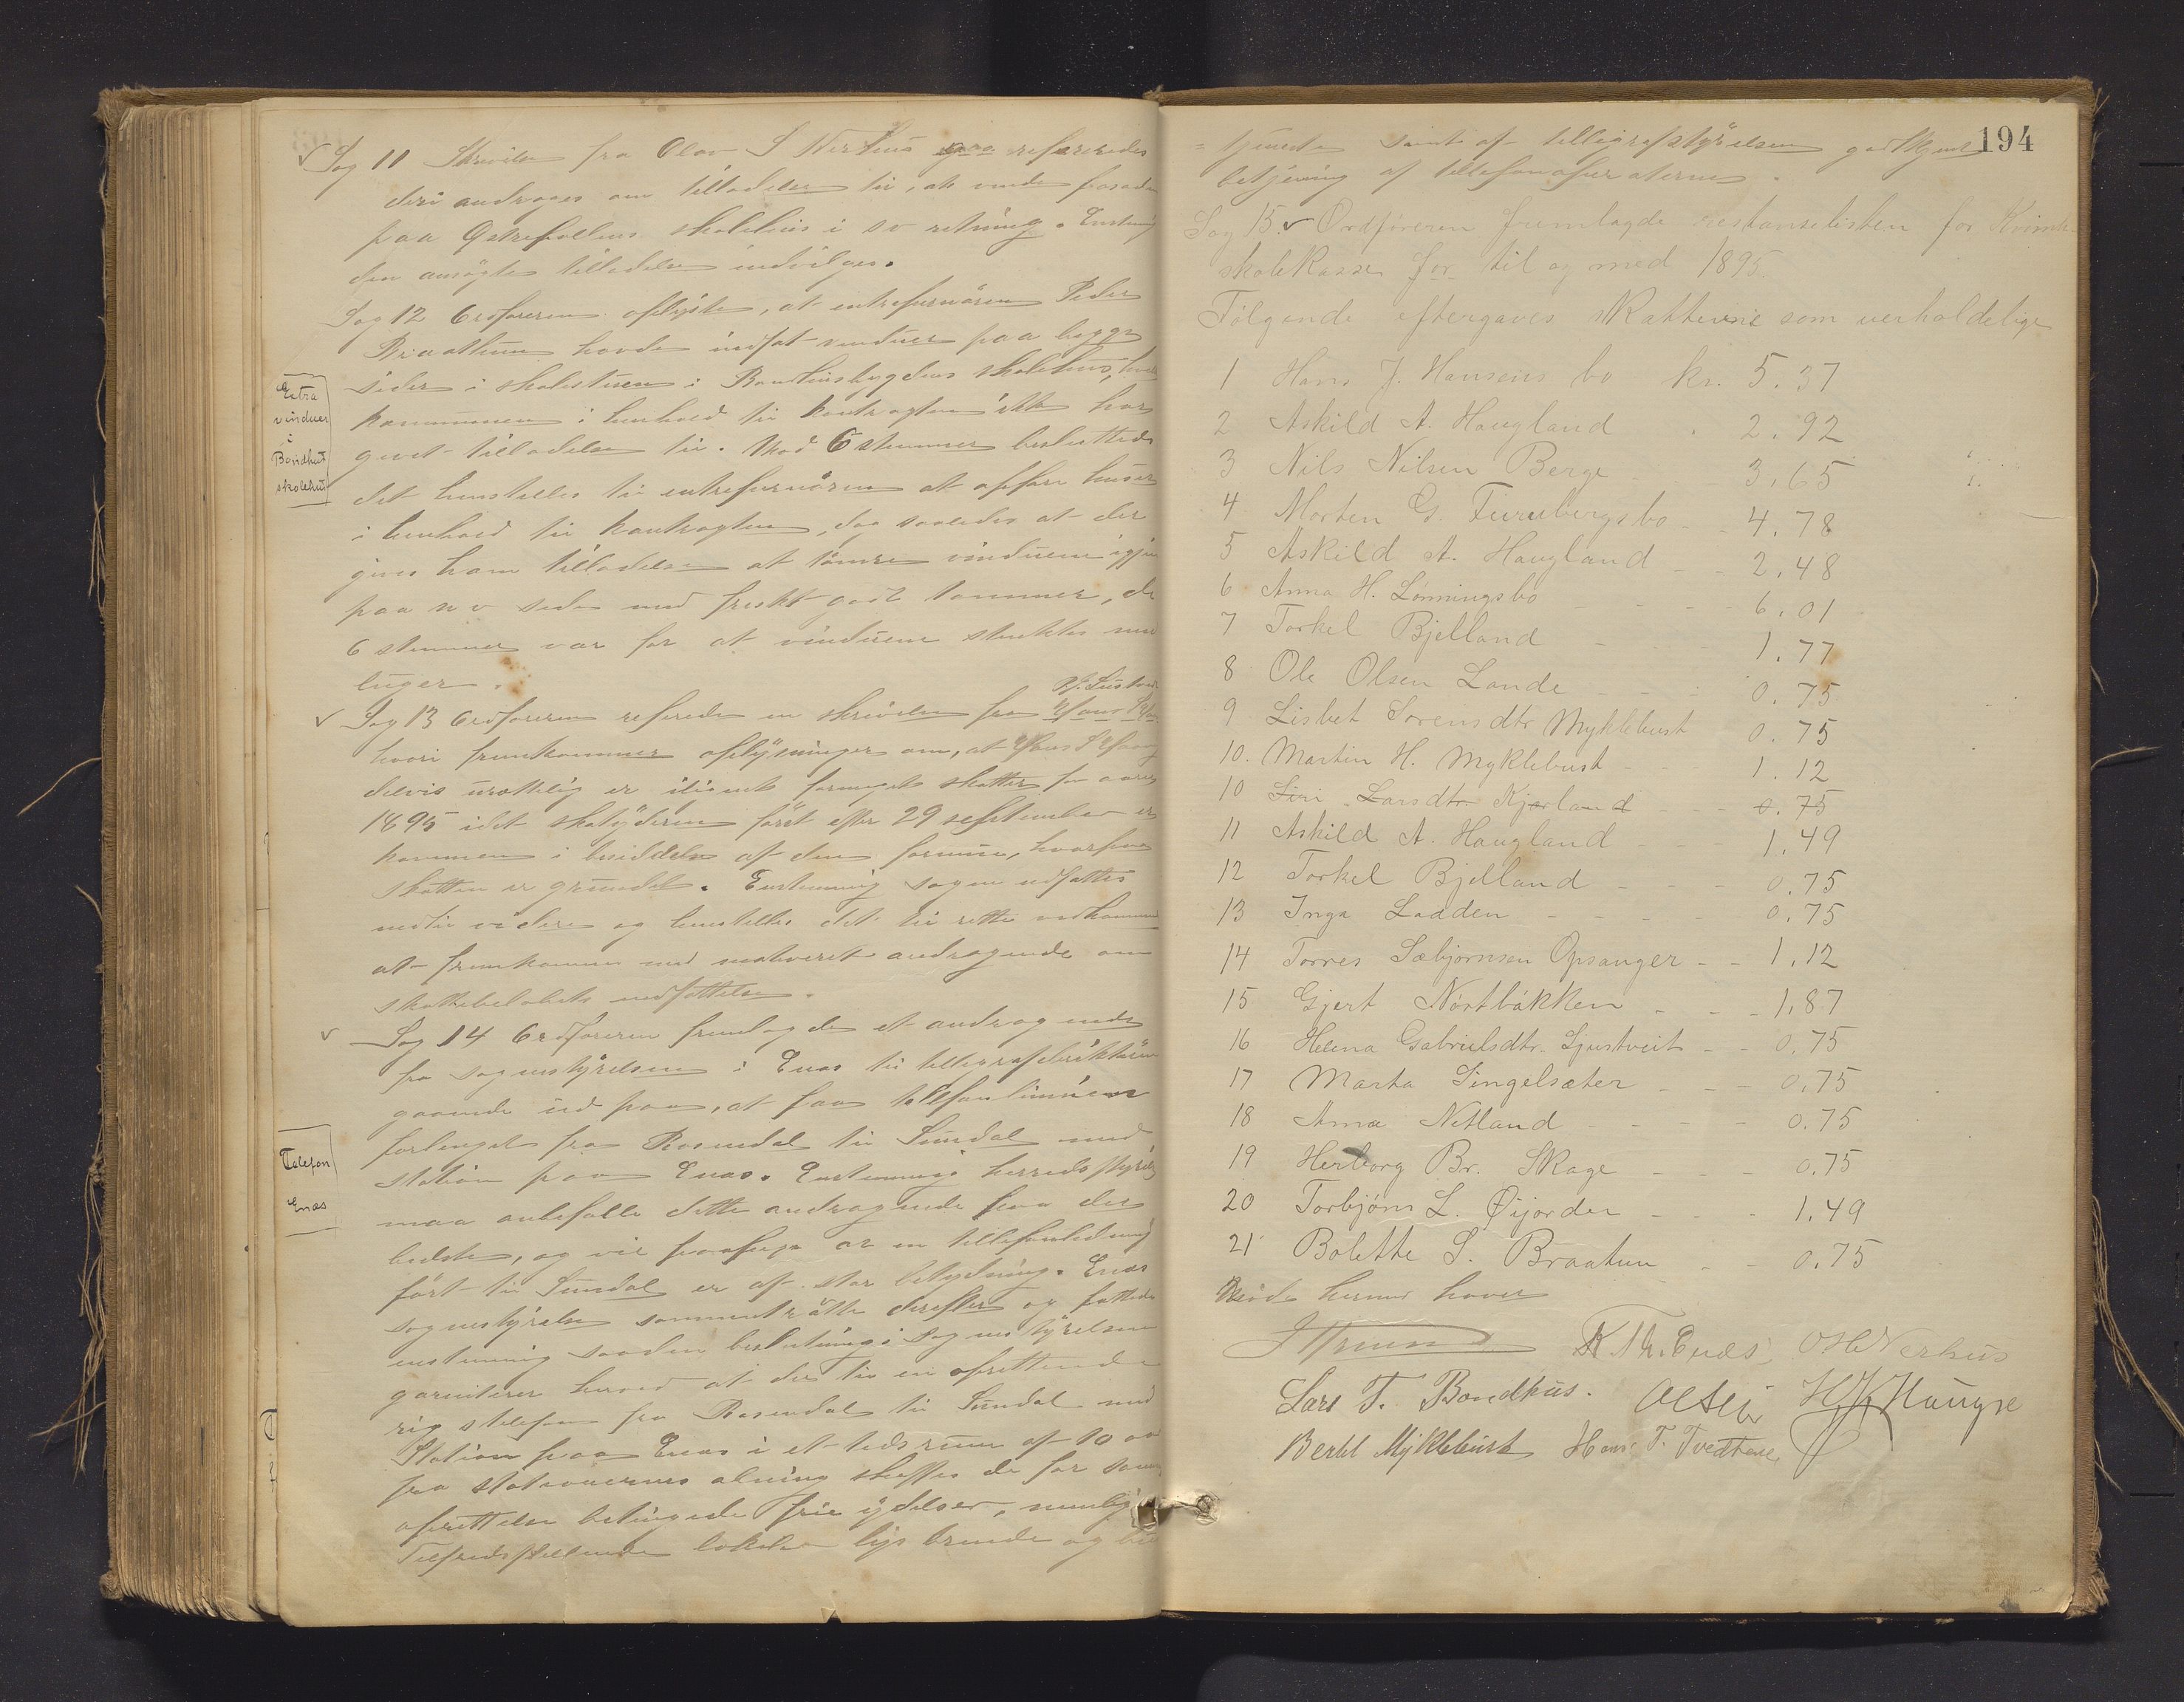 Sag 11 Skrivelse fra Olav S Nerhus refereredes
deri andrages om tilladelse til, at vende fasaden
paa Østrepollens skolehus i sv retning. Enstemmig
den ansøgte tilladelse indvilges.
Sag 12 Ordføreren oplyste, at entreprenøren Peder
Braathun havde indsat vinduer paa begge
sider i skolestuen i Bondhusbygdens skolehus, hvilket
kommunen i henhold til kontragten ikke har
givet tilladelse til. Mod 6 stemmer besluttedes
det henstilles til entreprenøren at opføre huset
i henhold til kontragten, dog saaledes at der
gives ham tilladelse at tømre vinduerne igjen
paa nv side med friskt godt tømmer, de
6 stemmer var for at vinduerne stenktes med
luger.
Extra
vinduer
i
Bondhus
skolehus
Sag 13 Ordføreren referede en skrivelse fra
hvori fremkommer oplysninger om, at Hans
delvis urettelig er ilignet formues skatter for aaret
1895 idet skatyderen først efter 29 september er
kommen i besiddelse af den formue, hvorpaa
skatten er grundet. Enstemmig sagen udsættes
indtil videre og henstilles det til rette vedkommende
at fremkomme med motiveret andragende om
skattebeløbets nedsættelse.
Sag 14 Ordføreren fremlagde et andragende
fra sognestyrelsen i Enæs til telegrafdirektøren
gaaende ud paa, at faa telefonlinien
forlenget fra Rosendal til Sundal med
station paa Enæs. Enstemmig herredsstyrelsen
maa anbefalle dette andragende paa det
bedste, og vil paapege at en tellefonledning
ført til Sundal er af stor betydning. Enæs
sognestyrelse sammentrætte derefter og fattede
enstemmig saadan beslutning: Sognestyrelsen
garenterer herved at der til en oprettende
rig stelefon fra Rosendal til Sundal med
Station paa Enæs i et tidsrum af 10 aar
fra stationernes abning skaffes de for saadan
oprettelse betingede frie ydelser, nemlig
Tilfredsstillende lokaler lys brende og
Telefon
Enæs
194
tjeneste samt af tellegrafstyrelsen godkjent
betjening af tellefonapperaterne.
Sag 15. Ordføreren fremlagde restanselisten for Kvinh.
skolekasse for til og med 1895.
Følgende eftergaves skatterne som uerholdelige
1 Hans J. Hansens bo kr. 5.37
2 Askild A. Haugland 2.92
3 Nils Nilsen Berge 3.65
4 Morten G. Furubergs bo - - 4.78
5 Askild A. Haugland - - 2.48
6 Anna H. Lønningsbo - - - - 6.01
7 Torkel Bjelland - - - 1.77
8 Ole Olsen Lande - - - 0.75
9 Lisbet Sørensdtr Myklebust 0.75
10. Martin H. Myklebust - - - 1.12
10 Siri Larsdtr Kjærland - - - 0.75
11 Askild A. Haugland - - - 1.49
12 Torkel Bjelland - - - 0.75
13 Inga Ladden - - - 0.75
14 Torres Sæbjørnsen Opsanger - - 1.12
15 Gjert Nørtbákken - - - 1.87
16 Helena Gabrielsdtr. Ljustveit - - 0.75
17 Marta Singelsæter - - - 0.75
18 Anna Netland - - - - 0.75
19 Herborg Br. Skage - - - 0.75
20 Torbjørn L. Øijorden - - - 1.49
21 Bolette S. Braatun - - 0.75
Møde hermed hævet
K Th. Enæs OSNerhus
Lars T. Bondhus. Haugse
Bertel Myklebust Hans T. Tvedtene